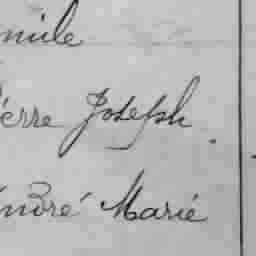 mile
ierre Joseph.
André Marie